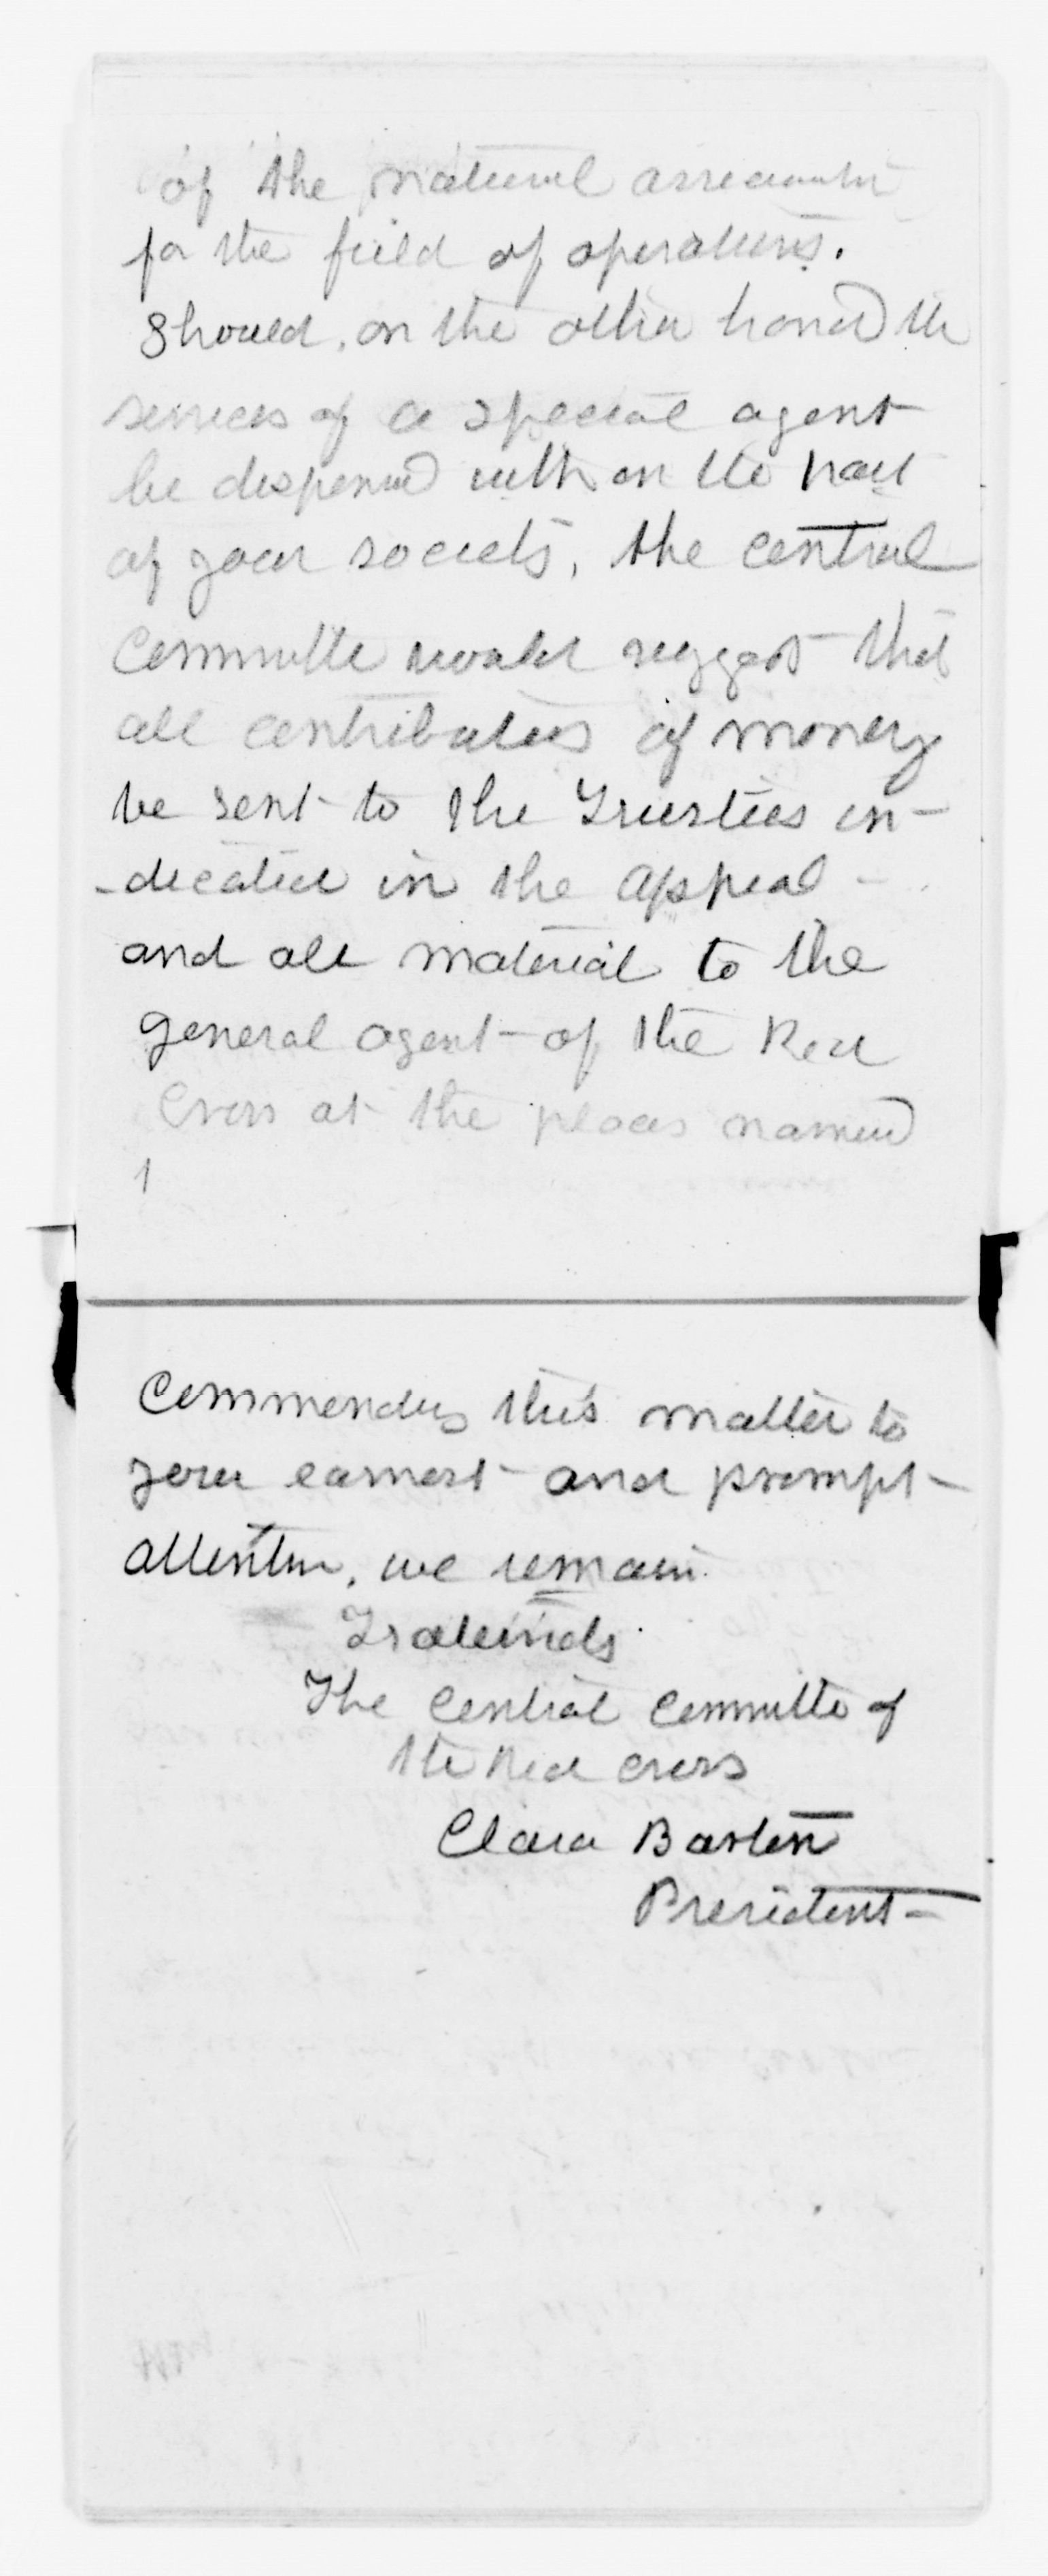 of the material
for the field of operations.
Should, on the other hand the
services of a special agent
be dispensed with on the part
of your society, the central
Committee would suggest that
all contributions of money
be sent to the Trustees in-
-dicated in the appeal -
and all material to the
general agent - of the Red
Cross at the places named
Commending this matter to
your earnest - and prompt -
attention, we remain.
Fraternals.
The Central Committee of
the Red Cross
Clara Barton
President -